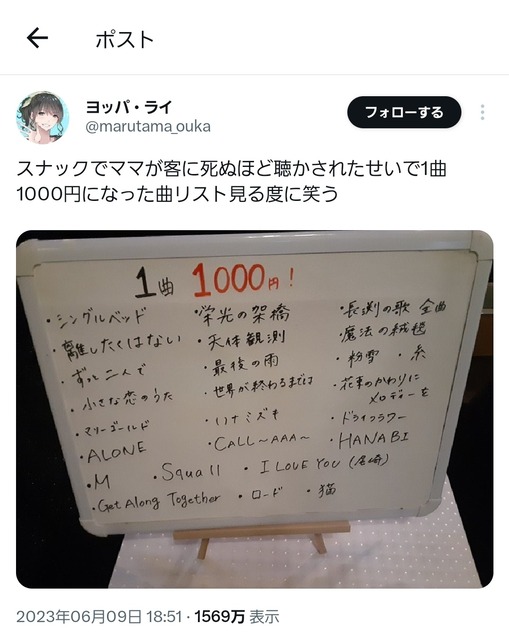 ポスト
ヨッパ・ライ
@marutama_ouka
フォローする
スナックでママが客に死ぬほど聴かされたせいで1曲
1000円になった曲リスト見る度に笑う
1曲 1000円!
・シングルベッド
・離したくはない
・ずっと二人で
・小さな恋のうた
・マリーゴールド
・ALONE
・M
・Get Along Together
・栄光の架橋
・天体観測
・最後の雨
・世界が終わるまでは
・ハナミズキ
・CALL~AAA~
・Squall
・I LOVE YOU (尾崎)
・ロード
・猫
・長渕の歌 全曲
・魔法の絨毯
・粉雪 ・糸
・花束のかわりに
メロディーを
・ドライフラワー
・HANABI
2023年06月09日 18:51・1569万 表示